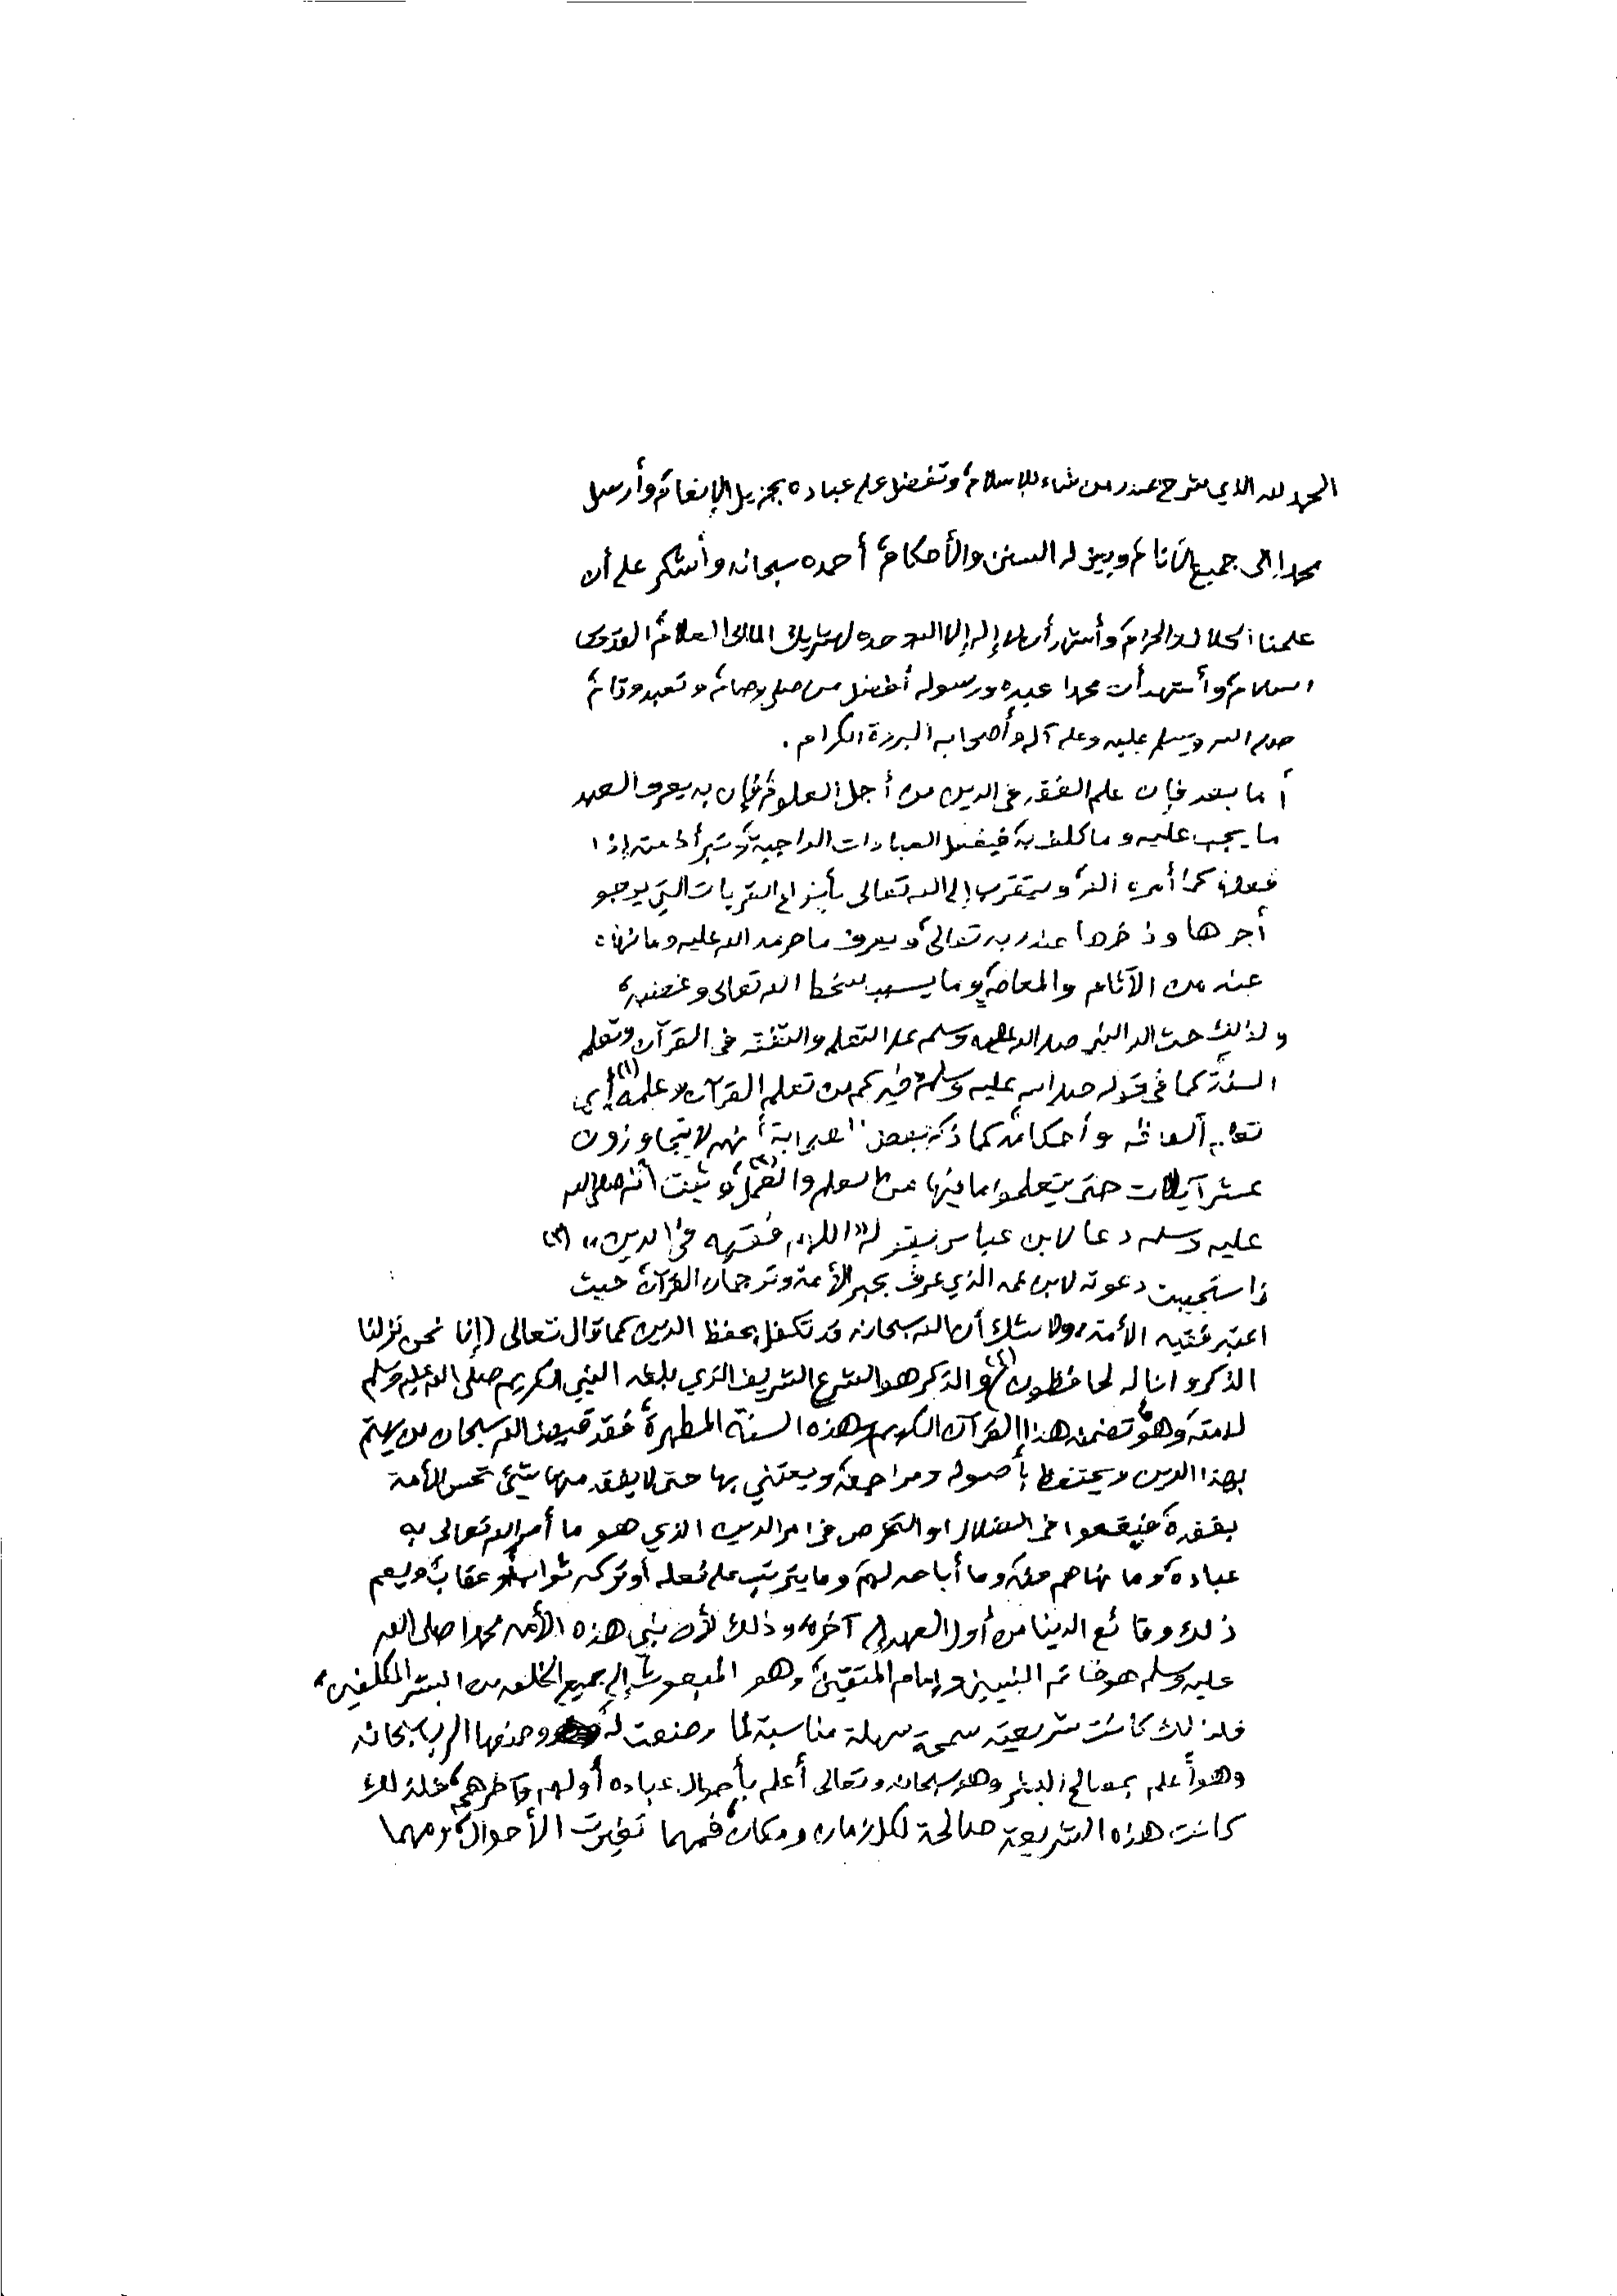 الحمد لله الذي شرح صدر من شاء للإسلام، وتفضل على عباده بجزيل الإنعام، وأرسل
محمدا إلى جميع الأنام، وبين له السنن والأحكام، أحمده سبحانه وأشكر على أن
علمنا الحلال والحرام، وأشهد أن لا إله إلا الله وحده لا شريك الملك العلام، القدوس
السلام، وأشهد أن محمدا عبده ورسوله أفضل من صلى وصام، وتعبد وقام،
صلى الله وسلم عليه وعلى آله وأصحابه البررة الكرام.
أما بعد فإن علم الفقه في الدين من أجل العلوم، فإن به يعرف العبد
ما يجب عليه وما كلف به، فيفعل العبادات الواجبة، وتبرأ ذمته إذا
فعلها كما أمره الله، ويتقرب إلى الله تعالى بأنواع القربات التي يرجو
أجرها وذخرها عند ربه تعالى، ويعرف ما حرمه الله عليه وما نهاه
عنه من الآثام والمعاصي، وما يسبب سخط الله تعالى وغضبه،
ولذلك حث النبي صلى الله عليه وسلم على التعلم والتفقه في القرآن وتعلم
السنة، كما في قوله صلى الله عليه وسلم: خيركم من تعلم القرآن وعلمه (١) أي
تعلم ألفاظه وأحكامه، كما ذكر بعض الصحابة أنهم لا يتجاوزون
عشر آيات حتى يتعلموا ما فيها من العلم والعمل (٢)، وثبت أنه صلى الله
عليه وسلم دعا لابن عباس بقوله: «اللهم فقهه في الدين» (٣)
فاستجيبت دعوته لابن عمه الذي عرف بحبر الأمة وترجمان القرآن، حيث
اعتبر فقيه الأمة، ولا شك أن الله سبحانه قد تكفل بحفظ الدين كما قال تعالى (إنا نحن نزلنا
الذكر وإنا له لحافظون) (٤) والذكر هو الشرع الشريف الذي بلغه النبي الكريم صلى الله عليه وسلم
لأمته، وهو ما تضمنه هذا القرآن الكريم وهذه السنة المطهرة، فقد قيض الله سبحانه من يهتم
بهذا الدين ويحتفظ بأصوله ومراجعه، ويعتني بها حتى لا يفقد منها شيئ تحس الأمة
بفقده، فيقعوا في الضلال او التخرص في امر الدين الذي هو ما أمر الله تعالى به
عباده، وما نهاهم عنه، وما أباحه لهم، وما يترتب على فعله أو تركه ثواب أو عقاب، ويعم
ذلك وقائع الدنيا من أول العهد إلى آخره، وذلك لأن نبي هذه الأمة محمدا صلى الله
عليه وسلم هو خاتم النبيين وإمام المتقين، وهو المبعوث إلى جميع الخلق من البشر المكلفين،
فلذلك كانت شريعته سمحة سهلة مناسبة لما وضعت له، وضعها الرب سبحانه
وهو أعلم بمصالح البشر وهو سبحانه وتعالى أعلم بأحوال عباده أولهم وآخرهم، فلذلك
كانت هذه الشريعة صالحة لكل زمان ومكان، فمهما تغيرت الأحوال، ومهما